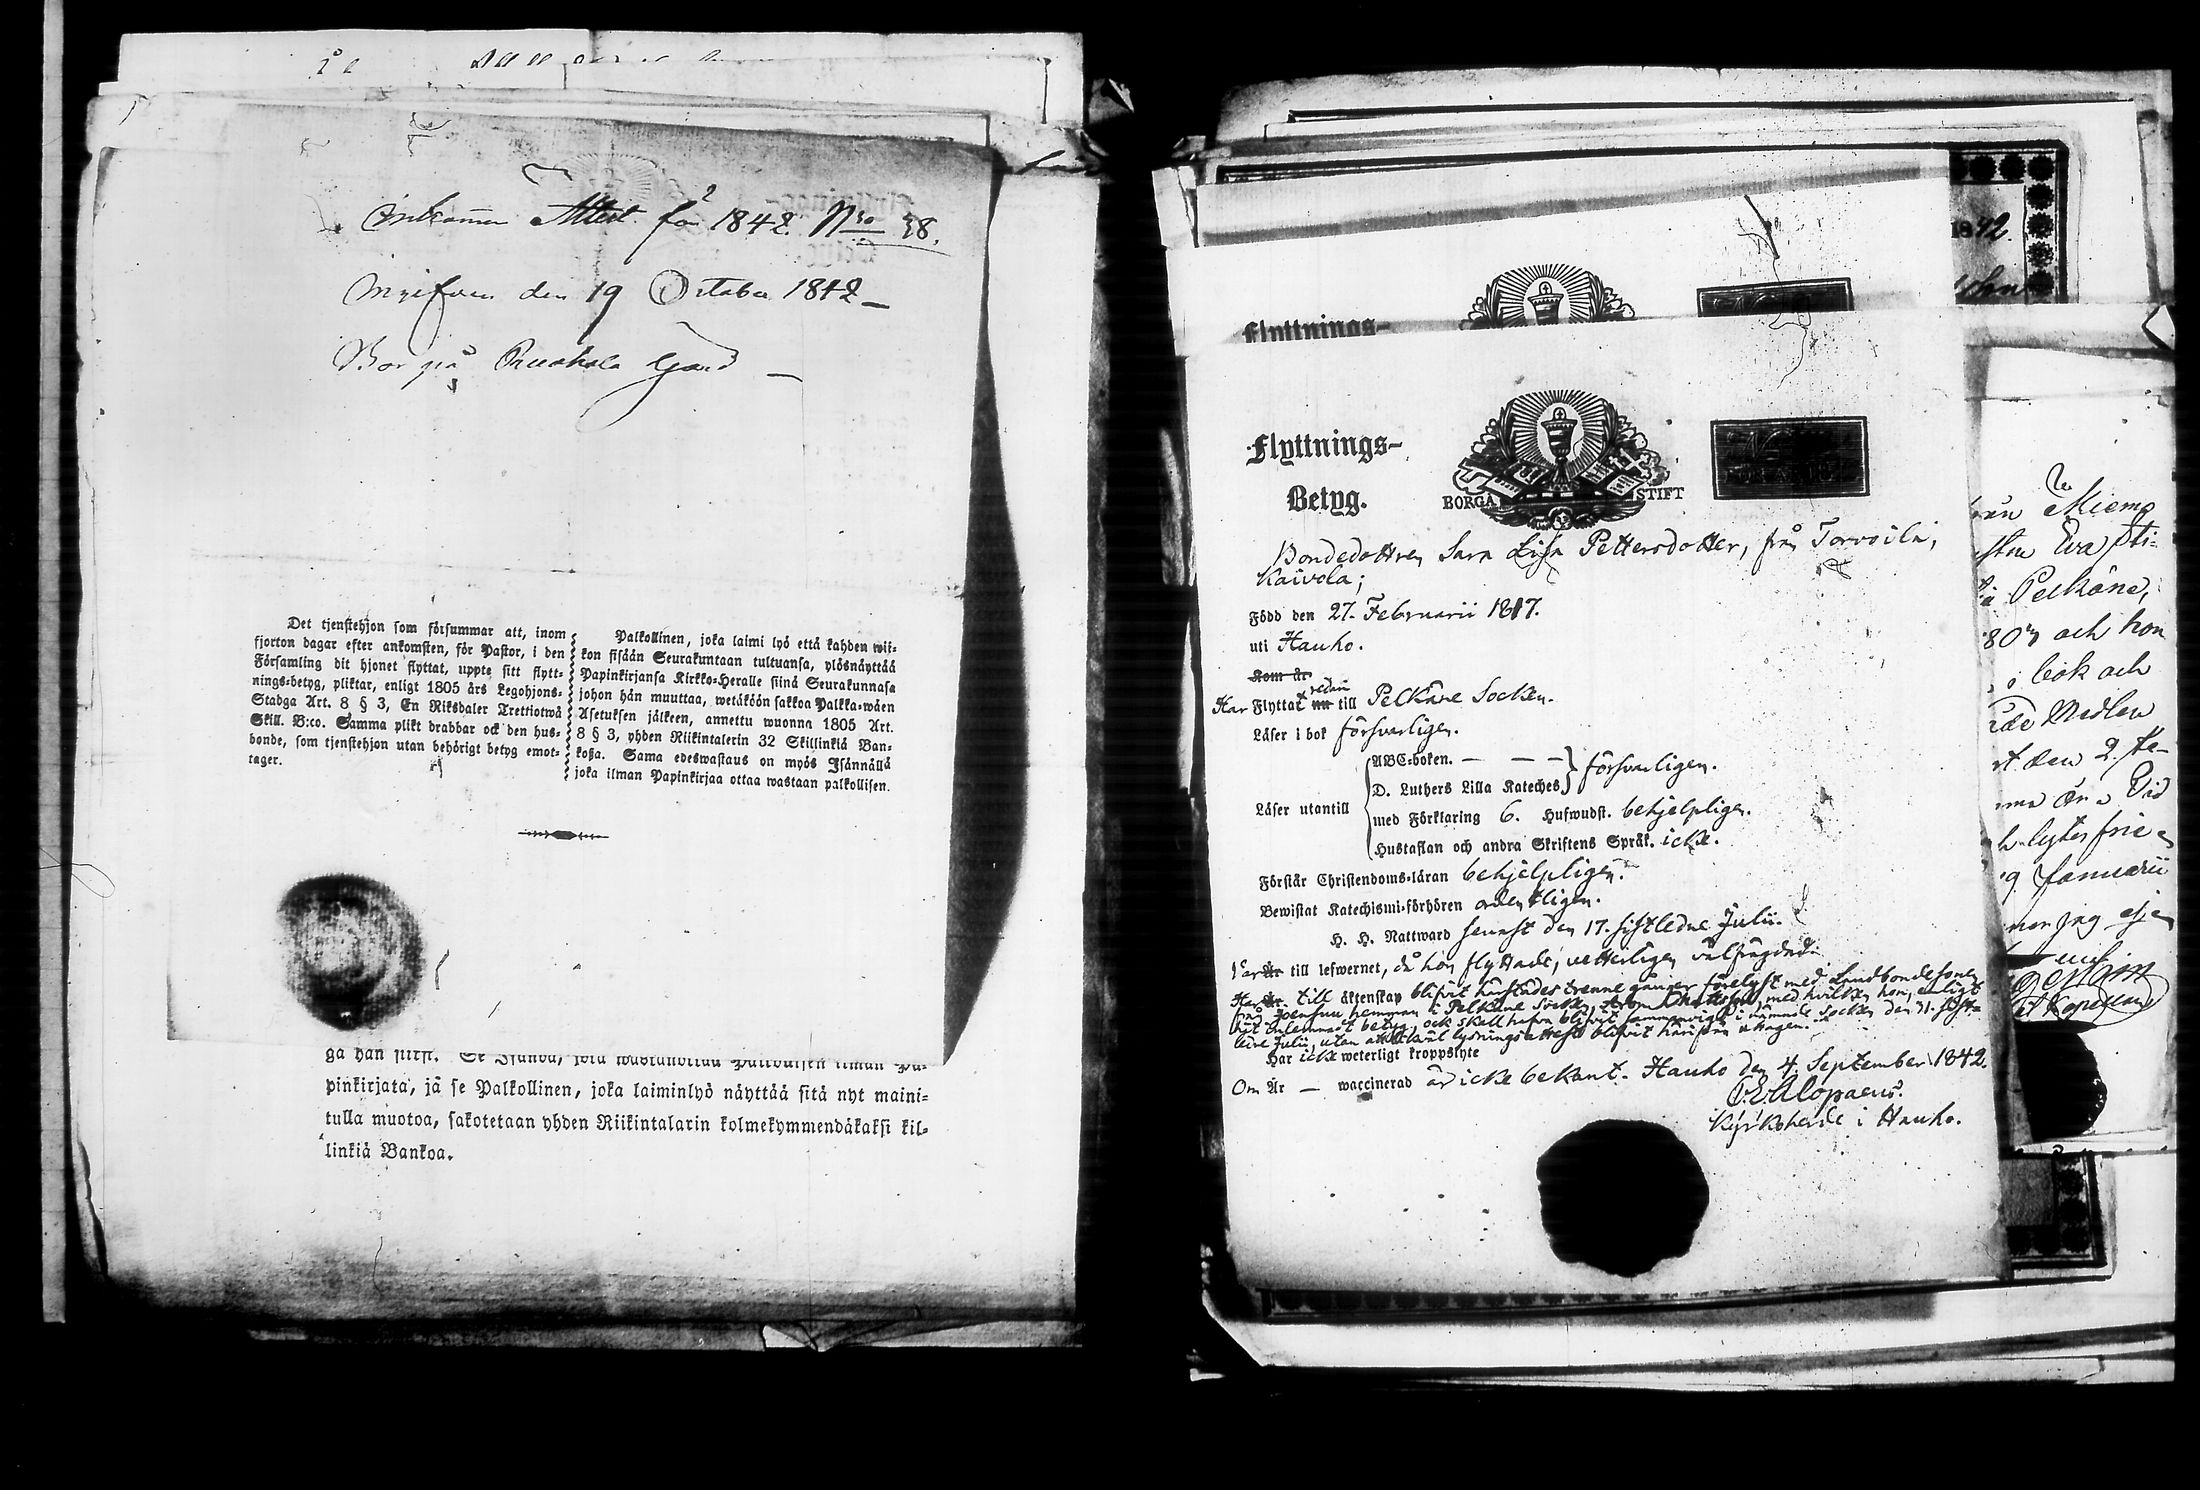 Inkommen Attest för 1842 Nro 38.
Ingifven den 19 October 1842 —
Bor på Ruokola Gård —
Det tjenstehjon som försummar att, inom
fjorton dagar efter ankomsten, för Pastor, i den
Församling dit hjonet flyttat, uppte sitt flytt-
nings-betyg, pliktar, enligt 1805 års Legohjons-
Stadga Art. 8 § 3, En Riksdaler Trettiotwå
Skill. B:co. Samma plikt drabbar ock den hus-
bonde, som tjenstehjon utan behörigt betyg emot-
tager.
Palkollinen, joka laimi lyö että kahden wii-
kon sisään Seurakuntaan tultuansa, ylösnäyttää
Papinkirjansa Kirkko-Heralle siinä Seurakunnasa
johon hän muuttaa, wetäköön sakkoa Palkka-wäen
Asetuksen jälkeen, annettu wuonna 1805 Art.
8 § 3, yhden Riikintalerin 32 Skillinkiä Ban-
kosa. Sama edeswastaus on myös Isännällä
joka ilman Papinkirjaa ottaa wastaan palkollisen.
pinkirjata, ja se Palkollinen, joka laiminlyö näyttää sitä nyt maini-
tulla muotoa, sakotetaan yhden Riikintalarin kolmekymmendäkaksi kil-
linkiä Bankoa.
1842.
Flyttnings-
Flyttnings-
Betyg.
BORGÅ STIFT
Bondedottren Sara Lisa Pettersdotter, från Torvoila,
Kaivola;
Född den 27. Februarii 1817.
uti Hauho.
Kom år
Har Flyttat redan nu till Pelkäne Socken.
Läser i bok försvarligen.
Läser utantill
ABC-boken. — — —
D. Luthers Lilla Kateches, försvarligen.
med Förklaring 6. Hufwudst. behjelpligen.
Hustaflan och andra Skriftens Språk. icke.
Förstår Christendoms-läran behjelpligen.
Bewistat Katechismi-förhören ordentligen.
H. H. Nattward senast den 17. sistledne Julii.
Var är till lefwernet, då hon flyttade, vetterligen välfrägdad.
Har är till äktenskap blifvit härstädes trenne gånger förelyst med Landbondesonen
från Joensuu hemman i Pelkäne Socken, med hvilken hon, enligt
hit inlemnadt betyg, ock skall hafva blifvit sammanvigd i nämnde Socken den 31. sist-
ledne Julii, utan att lysningsattest blifvit härifrån uttagen.
Har icke weterligt kroppslyte
Om Är — waccinerad är icke bekant. Hauho den 4. September 1842.
Alopaeus.
Kyrkoherde i Hauho.
Pelkäne,
och hon
bok och
den 2.
Januarii